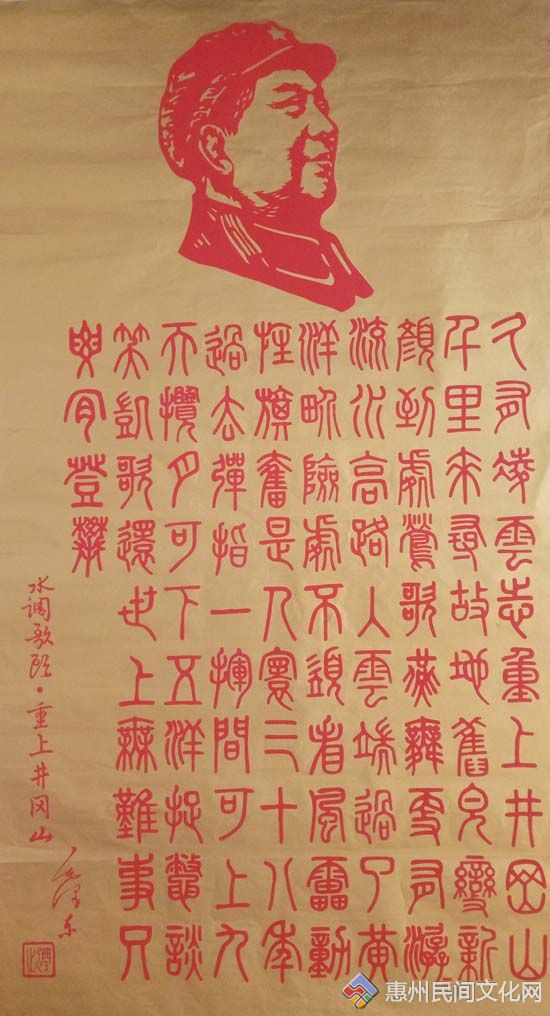 久有凌雲志重上井岡山
千里来尋故地舊皃變新
顏到處鶯歌燕舞更有潺
流水高路入雲端過了黄
洋畍險處不須看風雷動
旌旗奮是人寰三十八年
過去彈指一揮間可上九
天攬月可下五洋捉鱉談
笑凱歌還世上無難事只
要肯登攀
水调歌头·重上井冈山
毛泽东
润之
惠州民间文化网